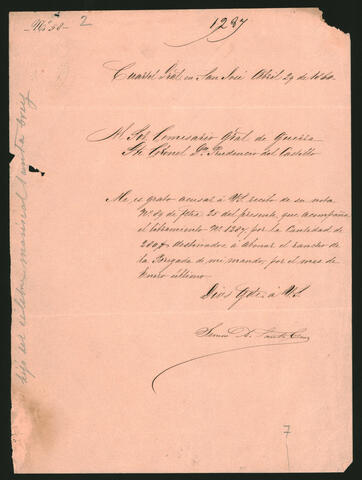 Nº 38-
2
1297
Cuartel Gral en San José Abril 29 de 1880
Al Sor. Comisario Gral de Guerra
Te. Coronel Dn. Prudencio del Castillo
Me es grato acusar á Ud. recibo de su nota
Nº 89 de fcha. 25 del presente, que acompaña
el libramiento Nº 1207 por la Cantidad de
destinados á abonar el rancho de
la Brigada de mi mando, por el mes de
Enero último.
Dios gde. á U.S.
Simon A. Santa Cruz
hijo del celebre mariscal Santa Cruz
7